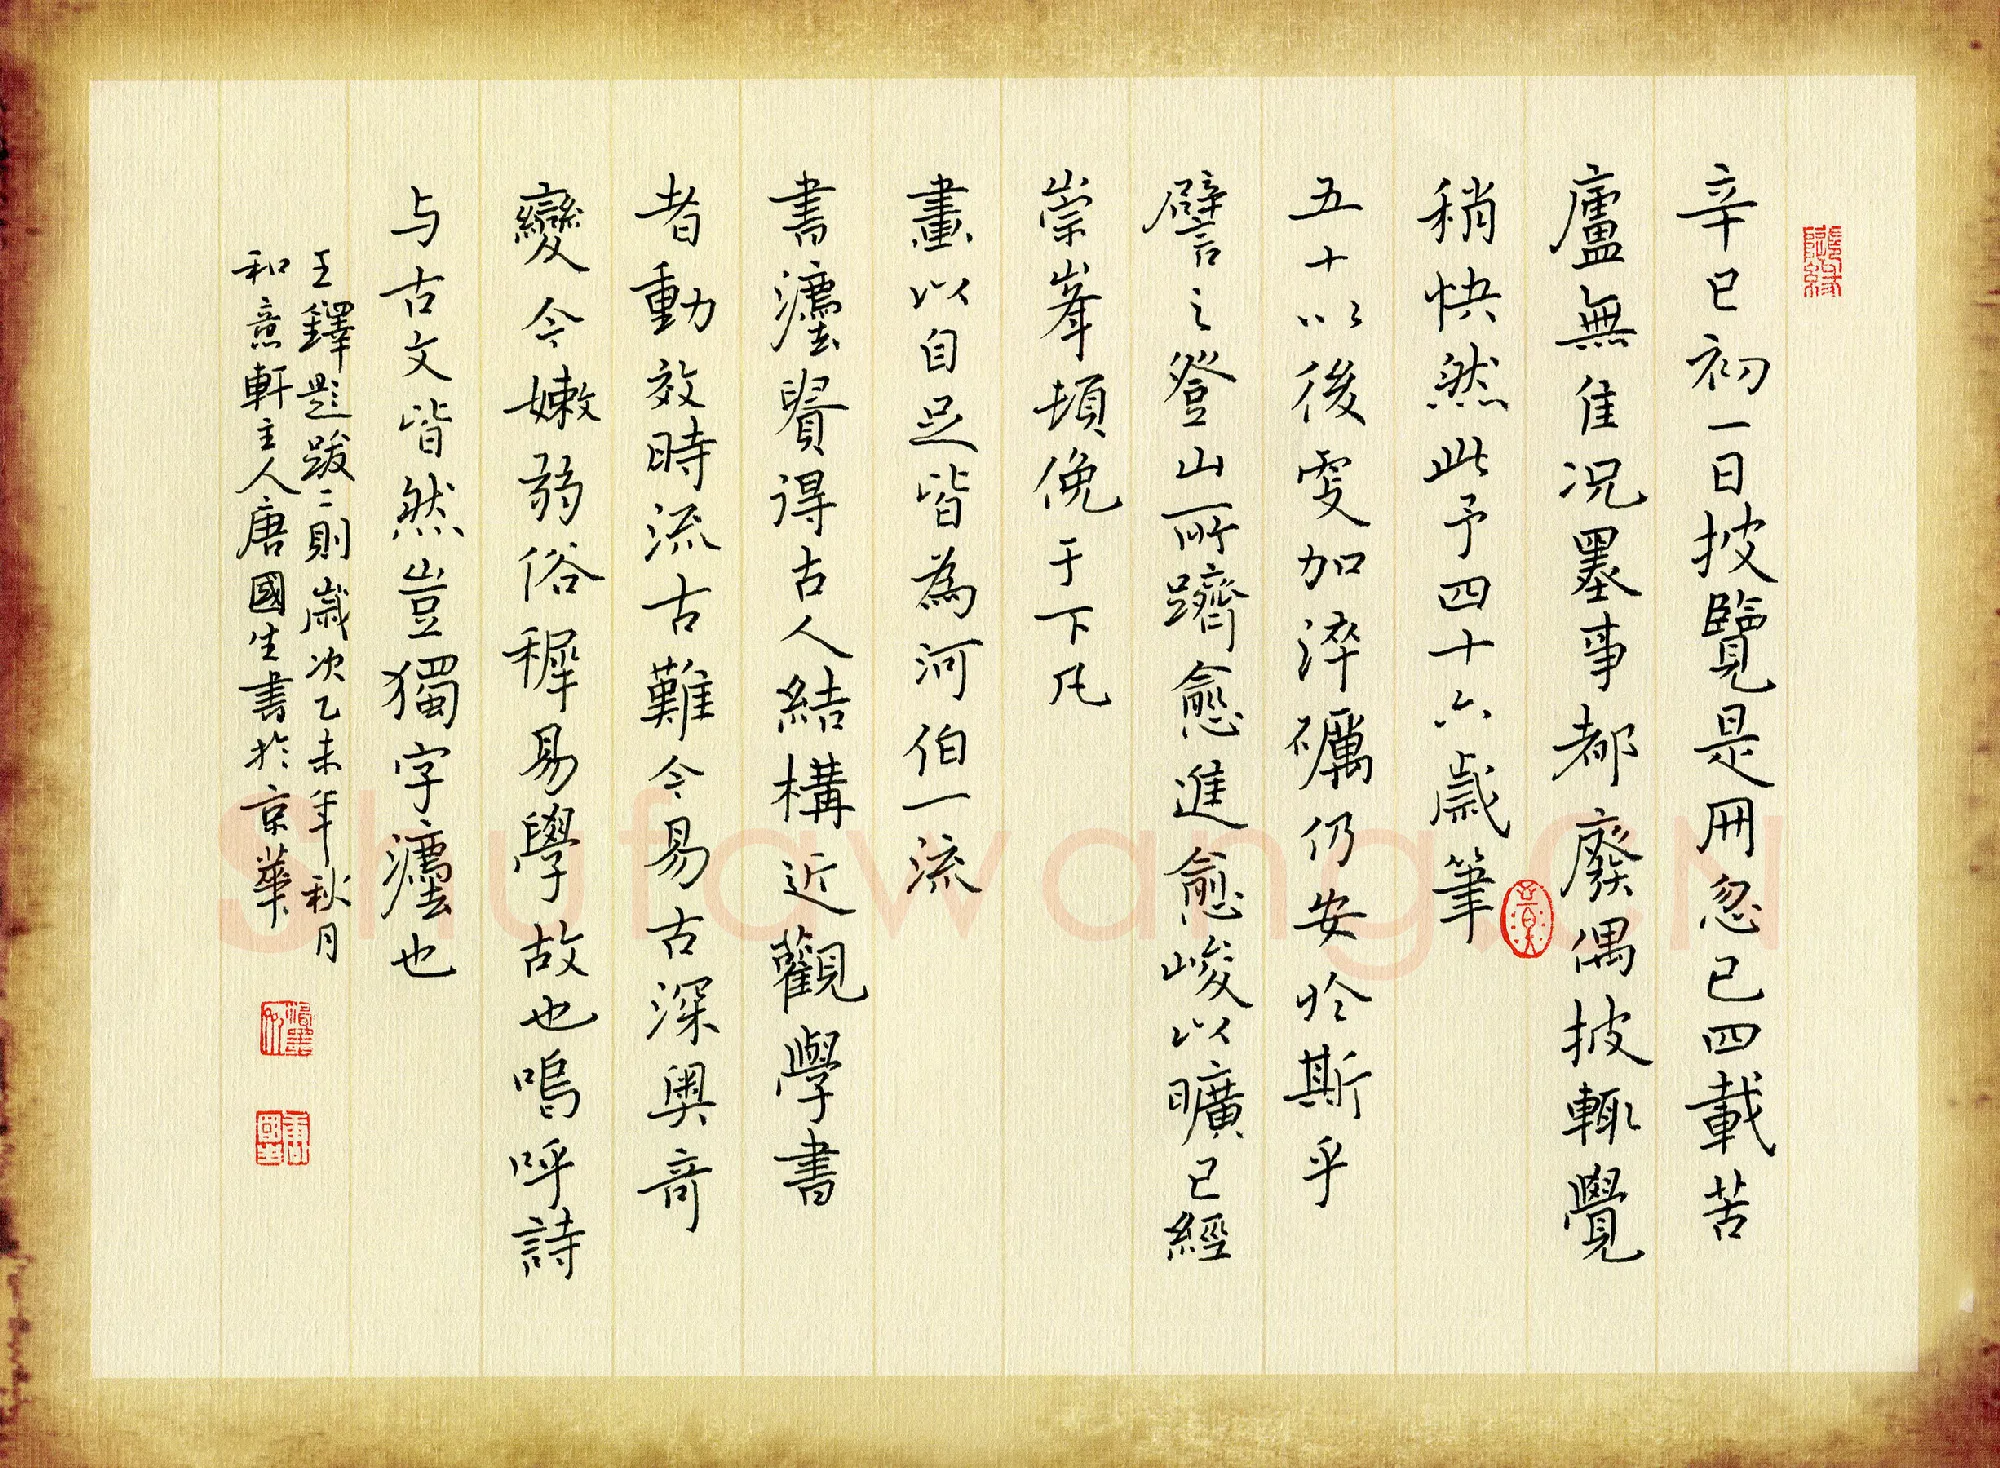 辛巳初一日披覽是冊忽已四載苦
廬無佳況墨事都廢偶披輒覺
稍快然此予四十六歲筆
五十以後更加淬礪仍安於斯乎
譬之登山所躋愈進愈峻以曠已經
崇峯頓俛于下凡
畫以自足皆為河伯一流
書灋貴得古人結構近觀學書
者動效時流古難今易古深奧奇
變今嫩弱俗穉易學故也嗚呼詩
与古文皆然豈獨字灋也
王鐸題跋二則歲次乙未年秋月
和意軒主人唐國生書於京華
Shufawang.CN